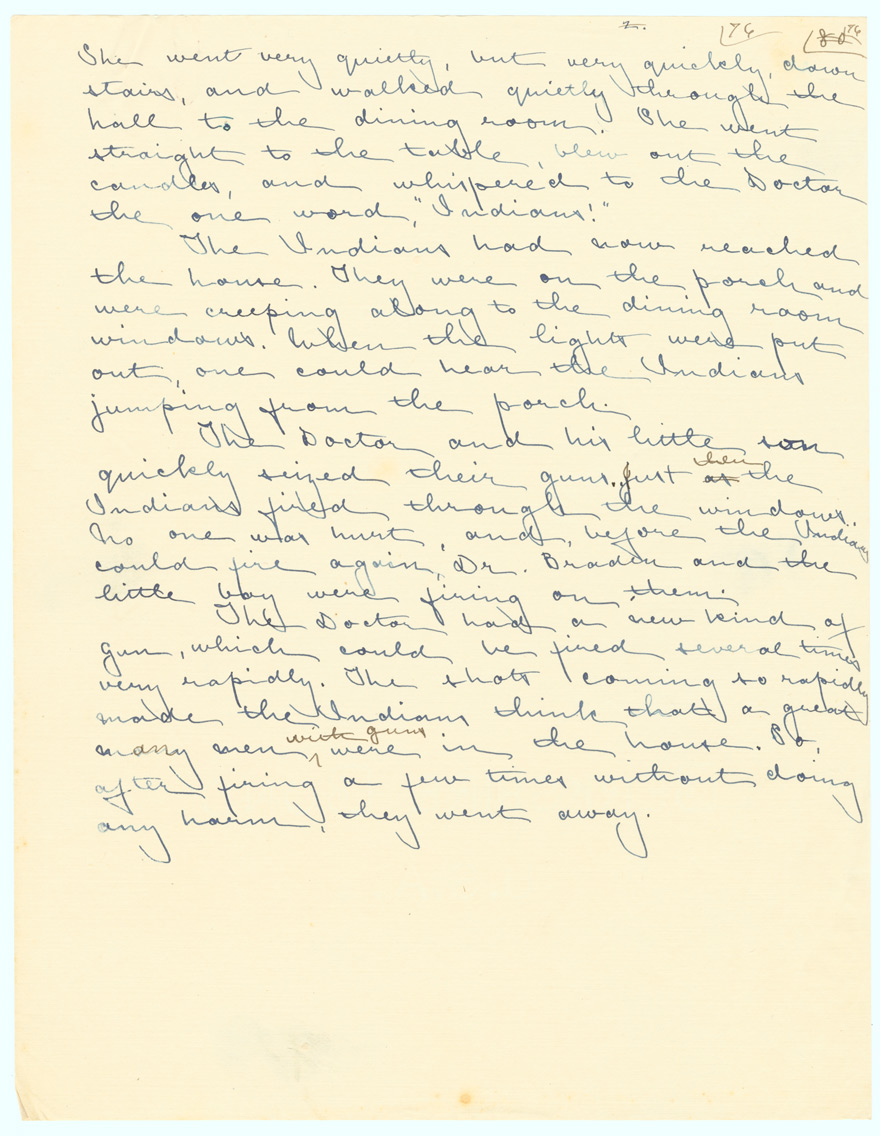 2. 76 80 76
She went very quietly, but very quickly, down
stairs, and walked quietly through the
hall to the dining room. She went
straight to the table, blew out the
candles, and whispered to the Doctor
the one word, "Indians!"
The Indians had now reached
the house. They were on the porch and
were creeping along to the dining room
windows. When the lights were put
out, one could hear the Indians
jumping from the porch.
The Doctor and his little son
quickly seized their guns. Just as then the
Indians fired through the windows.
No one was hurt, and, before the Indians
could fire again, Dr. Braden and the
little boy were firing on them.
The Doctor had a new kind of
gun, which could be fired several times
very rapidly. The shots coming so rapidly
made the Indians think that a great
many men with guns were in the house. So,
after firing a few times without doing
any harm, they went away.